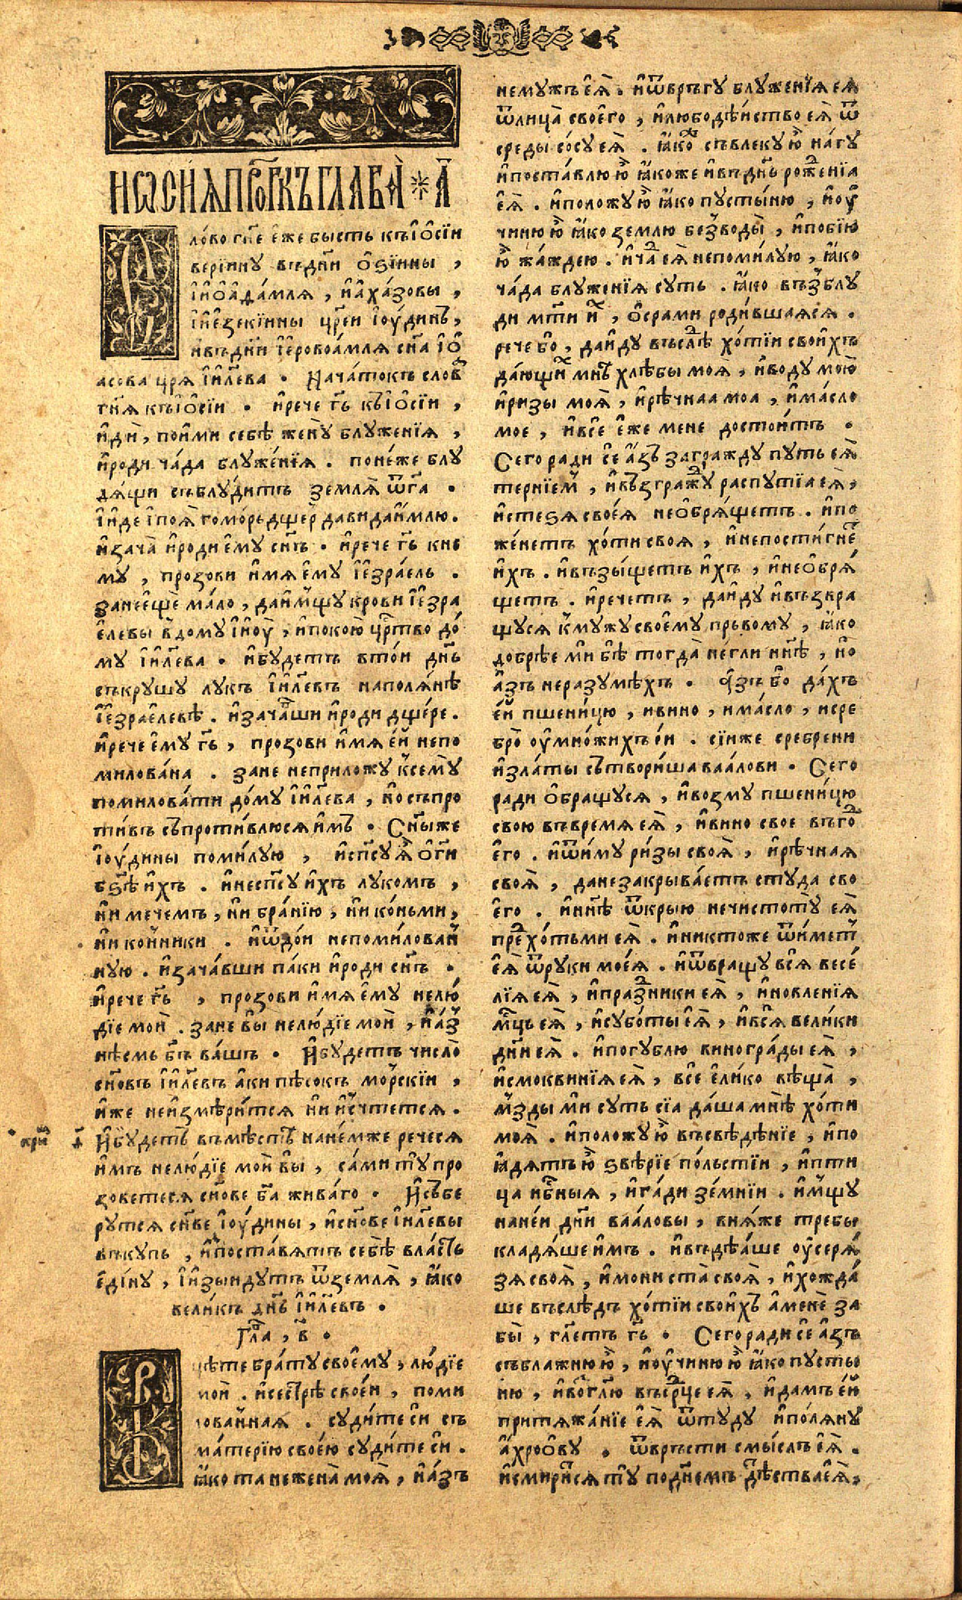 И҆ѠСИ́Я ПРⷪ҇РКЪ ГЛАВА̀ * А҃
ло́во гн҃е е҆́же бысть къ і҆ѻ҆сі́и
вері́ину въ дн҃и ѻ҆ѕі́инны ,
і҆ і҆ѻ҆аѳа́мля , и҆ а҆ха́зовы ,
і҆ і҆езекі́инны цр҃еи і҆ѹ́динъ ,
и҆ въ дн҃и і҆еровоа́мля сн҃а і҆ѻ҆
асова цр҃я і҆и҃лева . Нача́токъ слов
гн҃я къ і҆ѻ҆сі́и . и҆ рече гь҃ къ і҆ѻ҆сі́и ,
и҆дѝ , пои҆ми себѣ̀ жену̀ блуже́нїя ,
и҆ роди ча́да блуже́нїя . поне́же блу
дя́щи съблу́дитъ земля̀ ѿ га҃ .
і҆ и҆де і҆ поя̀ гоме́рь дще́р давидаи́млю .
и҆ зача̀ и҆ роди е҆му̀ сн҃ъ . и҆ рече гь҃ к не
му̀ , прозови и҆́мя е҆му̀ і҆езра́ель .
зане е҆щѐ ма́ло , да и҆мщу̀ крови і҆езра
е҆левы в дому̀ і҆иѹ́ , и҆ покою̀ цр҃тво до́
му і҆и҃лева . и҆ бу́детъ в то́и дн҃ь
съкрушу̀ лукъ і҆и҃левъ на поля́нѣ
і҆езрае҆левѣ . и҆ зача́вши и҆ роди дще́ре .
и҆ рече е҆му̀ гь҃ , прозови и҆́мя е҆ѝ непо
милова́на . зане не приложу̀ к сему̀
помилова́ти до́му і҆и҃лева , но съпро
ти́въ съпроти́влюся и҆́мъ . Сн҃ы же
і҆ѹ́дины поми́лую , и҆ сп҃су я҆̀ ѻ҆ гн҃и
бз҃ѣ и҆́хъ . и҆ не сп҃су и҆́хъ лукомъ ,
ни мече́мъ , ни бра́нїю , ни ко́ньми ,
ни ко́нники . и҆ ѿдоѝ непоми́лован
ную . и҆ зача́вши па́ки и҆ роди сн҃ъ .
и҆ рече гь҃ , прозови и҆́мя е҆му̀ не лю́
дїе моѝ . зане вы̀ не лю́дїе моѝ , и҆ а҆́з
нѣ́смь бг҃ъ ва́шъ . И҆ бу́детъ число̀
сн҃овъ і҆и҃левъ а҆ки пѣсокъ мо́рскїи ,
и҆́же не и҆змѣ́рится ни и҆счте́тся .
И҆ бу́детъ въ мѣ́стѣ на не́мже рече́ся
и҆́мъ не лю́дїе моѝ вы̀ , са́ми ту про
зовете́ся сн҃ове бг҃а жива́го . И҆ събе
ру́тся сн҃ве і҆ѹ́дины , и҆ сн҃ове і҆и҃левы
въкупь , и҆ поста́вятъ себѣ̀ вла́сть
е҆ди́ну , і҆ и҆зы́идутъ ѿ земля̀ , ꙗ҆́ко
вели́къ дн҃ь і҆и҃левъ .
Гла , в҃ .
цѣте бра́ту своему̀ , лю́дїе
мои . и҆ сестрѣ̀ свое́и , поми
лова́нная . суди́теси съ
ма́терїю свое́ю суди́теси .
ꙗ҆́ко та не жена̀ моя̀ , и҆ а҆́зъ
не му́жъ е҆я̀ . и҆ ѿвръгу блуже́нїя е҆я̀
ѿ лица̀ своего̀ , и҆ любодѣ́иство е҆я̀ ѿ
среды со́су е҆я̀ . ꙗ҆́ко съвлеку̀ ю҆̀ на́гу
и҆ поста́влю ю҆̀ ꙗ҆́коже и҆ въ дн҃ь роже́нїа
е҆я̀ . и҆ положу̀ ю҆̀ ꙗ҆́ко пусты́ню , и҆ ѹ҆
чиню̀ ю҆̀ ꙗ҆́ко зе́млю безводы̀ , и҆ побїю̀
ю҆̀ жа́ждею . и҆ ча́д е҆я̀ не поми́лую , ꙗ҆́ко
ча́да блуже́нїя суть . ꙗ҆́ко възблу
ди мт҃и и҆х , ѻ҆срами роди́вшая ся .
рече бо , да и҆ду въ слѣ́д хо́тїи свои́хъ
даю́щих мнѣ̀ хлѣ́бы моя̀ , и҆ во́ду мою̀
и҆ ри́зы моя̀ , и҆ рѣ́чнаа моа , и҆ ма́сло
мое , и҆ всѐ е҆же мене достои́тъ .
Сего ра́ди се а҆́зъ загражду̀ пу́ть е҆я̀
те́рнїем , и҆ възгражу̀ распу́тїа е҆я̀ ,
и҆ стеѕя̀ своея̀ не ѻ҆бря́щетъ . и҆ по
жене́тъ хо́ти своя̀ , и҆ не пости́гне
и҆́хъ . и҆ възы́щетъ и҆́хъ , и҆ не ѻ҆бря́
щетъ . и҆ рече́тъ , да и҆ду и҆ възвра
щу́ся к му́жу своему̀ пръвому , ꙗ҆́ко
добрѣ́е ми бѣ̀ тогда̀ не́гли нн҃ѣ , но
а҆́зъ не разумѣ́хъ . А҆́зъ бо да́хъ
е҆ѝ пшени́цю , и вино , и ма́сло , и сре
бро̀ ѹ҆мно́жихъ е҆ѝ . сїи́же сре́брени
и҆ зла́ты сътвори́ша ваа́лови . Сего
ра́ди ѻ҆браще́уся , и҆ возму пшени́цю
свою въ вре́мя е҆я̀ , и҆ вино свое въ го́д
е҆го . и҆ ѿи́му ри́зы своя̀ , и҆ рѣ́чная
своя̀ , да не закрыва́етъ сту́да сво
е҆го . и҆ нн҃ѣ ѿкры́ю нечистоту̀ е҆я̀
пред хо́тьми е҆я̀ . и҆ никто́же ѿи́мет
е҆я̀ ѿ руки мое́я . и҆ ѿвращу̀ вся̀ весе́
лїя е҆я̀ , и҆ пра́зники е҆я̀ , и҆ новле́нїя
мц҃ь е҆я̀ , и҆ субо́ты е҆я̀ , и҆ вся̀ вели́ки
дн҃и е҆я̀ . и҆ погублю виногра́ды е҆я̀ ,
и҆ смокви́нїя е҆я̀ , всѐ е҆ли́ко вѣща̀ ,
мзды̀ ми суть сїа да́ша мнѣ̀ хо́ти
моя̀ . и҆ положу̀ ю҆̀ въ свѣдѣ́нїе , и҆ по
ꙗ҆дя́тъ ю҆̀ ѕвѣ́рїе по́льстїи , и҆ пти
ца нбн҃ыя , и҆ га́ди зе́мнїи . и҆ мщу̀
на не́и дн҃и ваа́ловы , в ня́же требы
кладя́ше и҆́мъ . и҆ въдѣ́аше ѹ҆серя́
зя своя̀ , и҆ мони́ста своя̀ , и҆ хожда́
ше въ слѣ́дъ хо́тїи свои́хъ а҆ менѐ за
бы̀ , гл҃етъ гь҃ . Сего ра́ди се а҆́зъ
съблажню̀ ю҆̀ , и҆ ѹ҆чиню̀ ю҆̀ ꙗ҆́ко пусты
ню , и҆ възгл҃ю въ срц҃е е҆я̀ , и҆ да́мъ е҆ѝ
притяжа́нїе е҆я̀ ѿту́ду и҆ поля́ну
а҆хро́ву . ѿвръсти смы́слъ е҆я̀ .
и҆ смири́ся ту̀ по дн҃емъ дѣ́ства е҆я̀ ,